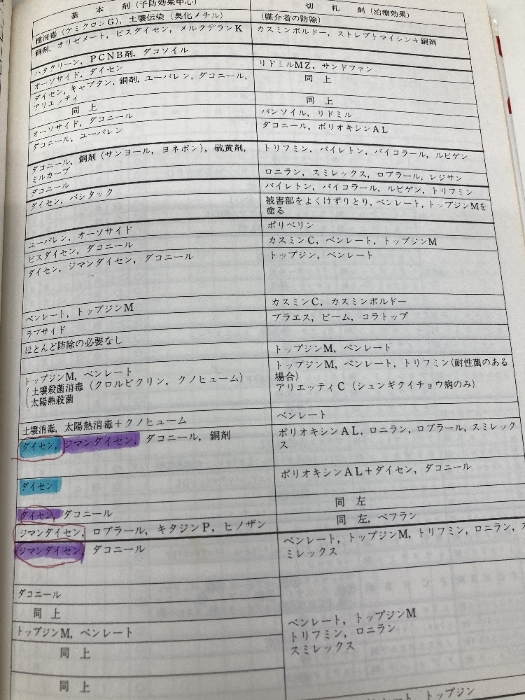 基本剤（予防効果中心）　切札剤（治療効果）
種消毒（ケミクロンG），土壌伝染（臭化メチル）　（媒介者の防除）
銅剤，オリゼメート，ビスダイセン，メルクデランK　カスミンボルドー，ストレプトマイシン＋銅剤
ハタクリーン，PCNB剤，ダコソイル
オーソサイド，ダイセン　リドミルMZ，サンドファン
ダイセン，キャプタン，銅剤，ユーパレン，ダコニール，　同上
アリエッティ
同上　同上
オーソサイド，ダコニール　パンソイル，リドミル
ダコニール，ユーパレン　ダコニール，ポリオキシンAL
ダコニール，銅剤（サンヨール，ヨネポン），硫黄剤，　トリフミン，バイレトン，バイコラール，ルビゲン
ミルカーブ
ダコニール　ロニラン，スミレックス，ロブラール，レジサン
ダイセン，バシタック　バイレトン，バイコラール，ルビゲン，トリフミン
被害部をよくけずりとり，ベンレート，トップジンMを
塗る
ユーパレン，オーソサイド　ポリベリン
ビスダイセン，ダコニール　カスミンC，ベンレート，トップジンM
ダイセン，ジマンダイセン，ダコニール　トップジン，ベンレート
ベンレート，トップジンM　カスミンC，カスミンボルドー
ラブサイド　ブラエス，ビーム，コラトップ
ほとんど防除の必要なし
トップジンM，ベンレート
トップジンM，ベンレート　トップジンM，ベンレート，トリフミン（耐性菌のある
土壌殺菌消毒（クロルピクリン，クノヒューム）　場合）
太陽熱殺菌　アリエッティC（シュンギクイチョウ病のみ）
土壌消毒，太陽熱消毒＋クノヒューム　ベンレート
ダイセン，ジマンダイセン，ダコニール，銅剤　ポリオキシンAL，ロニラン，ロブラール，スミレック
ス
ダイセン　ポリオキシンAL＋ダイセン，ダコニール
ダイセン，ダコニール　同左
ジマンダイセン，ロブラール，キタジンP，ヒノザン　同左，ベフラン
ジマンダイセン，ダコニール　ベンレート，トップジンM，トリフミン，ロニラン，ス
ミレックス
ダコニール
同上　ベンレート，トップジンM
トップジンM，ベンレート　トリフミン，ロニラン
同上　スミレックス
同上
ベンレート，トップジン